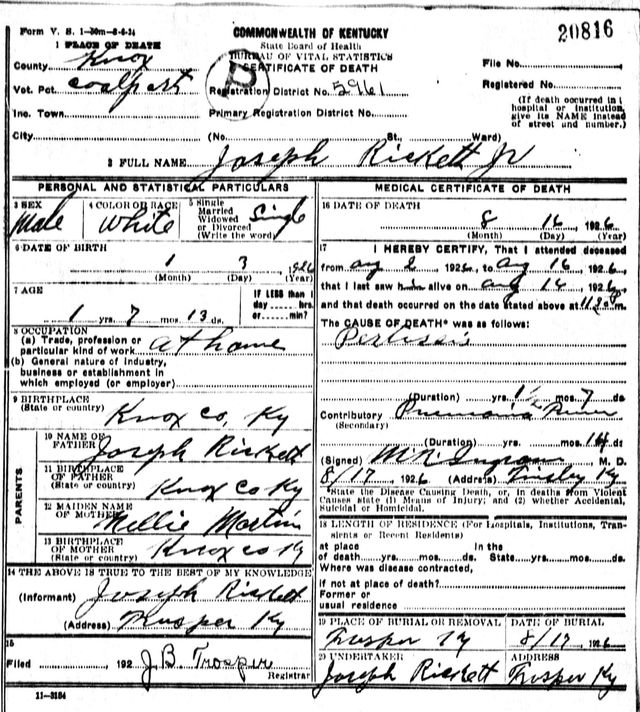 Form V. S. 1-30m-8-6-24
COMMONWEALTH OF KENTUCKY
20816
1 PLACE OF DEATH
State Board of Health
BUREAU OF VITAL STATISTICS
CERTIFICATE OF DEATH
County Knox
File No.
Vot. Pct. Coalport
Registration District No. 5961
Registered No.
(If death occurred in a hospital or institution, give its NAME instead of street and number.)
Inc. Town
Primary Registration District No.
City (No. St., Ward)
2 FULL NAME Joseph Rickett Jr
PERSONAL AND STATISTICAL PARTICULARS
3 SEX Male
4 COLOR OR RACE White
5 Single Married Widowed or Divorced (Write the word) Single
6 DATE OF BIRTH
1 3 1926
(Month) (Day) (Year)
7 AGE
1 yrs. 7 mos. 13 ds.
IF LESS than 1 day ... hrs. or ... min?
8 OCCUPATION
(a) Trade, profession or particular kind of work at home
(b) General nature of industry, business or establishment in which employed (or employer)
9 BIRTHPLACE
(State or country) Knox co, Ky
PARENTS
10 NAME OF FATHER Joseph Rickett
11 BIRTHPLACE OF FATHER
(State or country) Knox Co Ky
12 MAIDEN NAME OF MOTHER Mellie Martin
13 BIRTHPLACE OF MOTHER
(State or country) Knox co Ky
14 THE ABOVE IS TRUE TO THE BEST OF MY KNOWLEDGE
(Informant) Joseph Rickett
(Address) Trosper Ky
15
Filed 192 J.B. Trosper
Registrar
11-3184
MEDICAL CERTIFICATE OF DEATH
16 DATE OF DEATH
8 16 1926
(Month) (Day) (Year)
17 I HEREBY CERTIFY, That I attended deceased
from Aug 2 1926, to Aug 16 1926,
that I last saw h alive on Aug 14 1926,
and that death occurred on the date stated above at 11.20 m.
The CAUSE OF DEATH* was as follows:
Pertussis
(Duration) yrs. 1 1/2 mos. 7 ds
Contributory Pneumonia
(Secondary)
(Duration) yrs. mos. 14 ds
(Signed) M. D.
8/17 1926 (Address) Ky
*State the Disease Causing Death, or, in deaths from Violent Causes state (1) Means of Injury; and (2) whether Accidental, Suicidal or Homicidal.
18 LENGTH OF RESIDENCE (For Hospitals, Institutions, Transients or Recent Residents)
At place In the
of death yrs. mos. ds. State yrs. mos. ds.
Where was disease contracted,
if not at place of death?
Former or
usual residence
19 PLACE OF BURIAL OR REMOVAL
Trosper Ky
DATE OF BURIAL
8/17 1926
20 UNDERTAKER
Joseph Rickett
ADDRESS
Trosper Ky